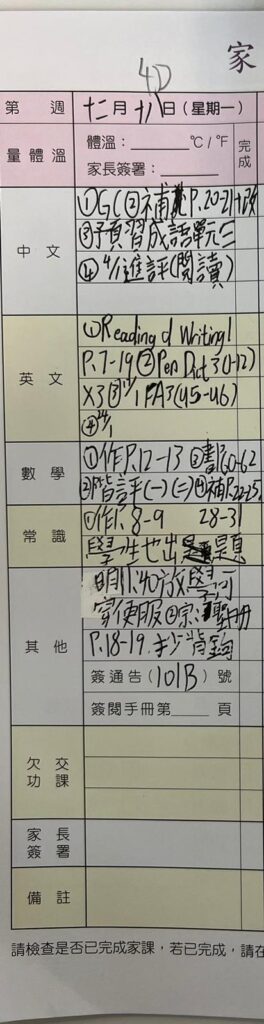 家
4D
第 週 十二月十八日(星期一)
量體溫 體溫：______℃/℉ 完成
家長簽署：______
中文 ①GC②補P.20-21+改
③預習成語單元三
④4/1進評(閱讀)
英文 ①Reading d Writing1
P.7-19②Pen Dict 3(1-12)
X3③11/1 FA3(U5-U6)
數學 ①作P.12-13③書P.60-62
②階評(一)(二)④補P.22-25
常識 ①作P.8-9 28-31
學生也出題
其他 明11:40放學可
穿便服
P.18-19.抄背銅
簽通告(101B)號
簽閱手冊第____頁
欠交功課
家長簽署
備註
請檢查是否已完成家課，若已完成，請在